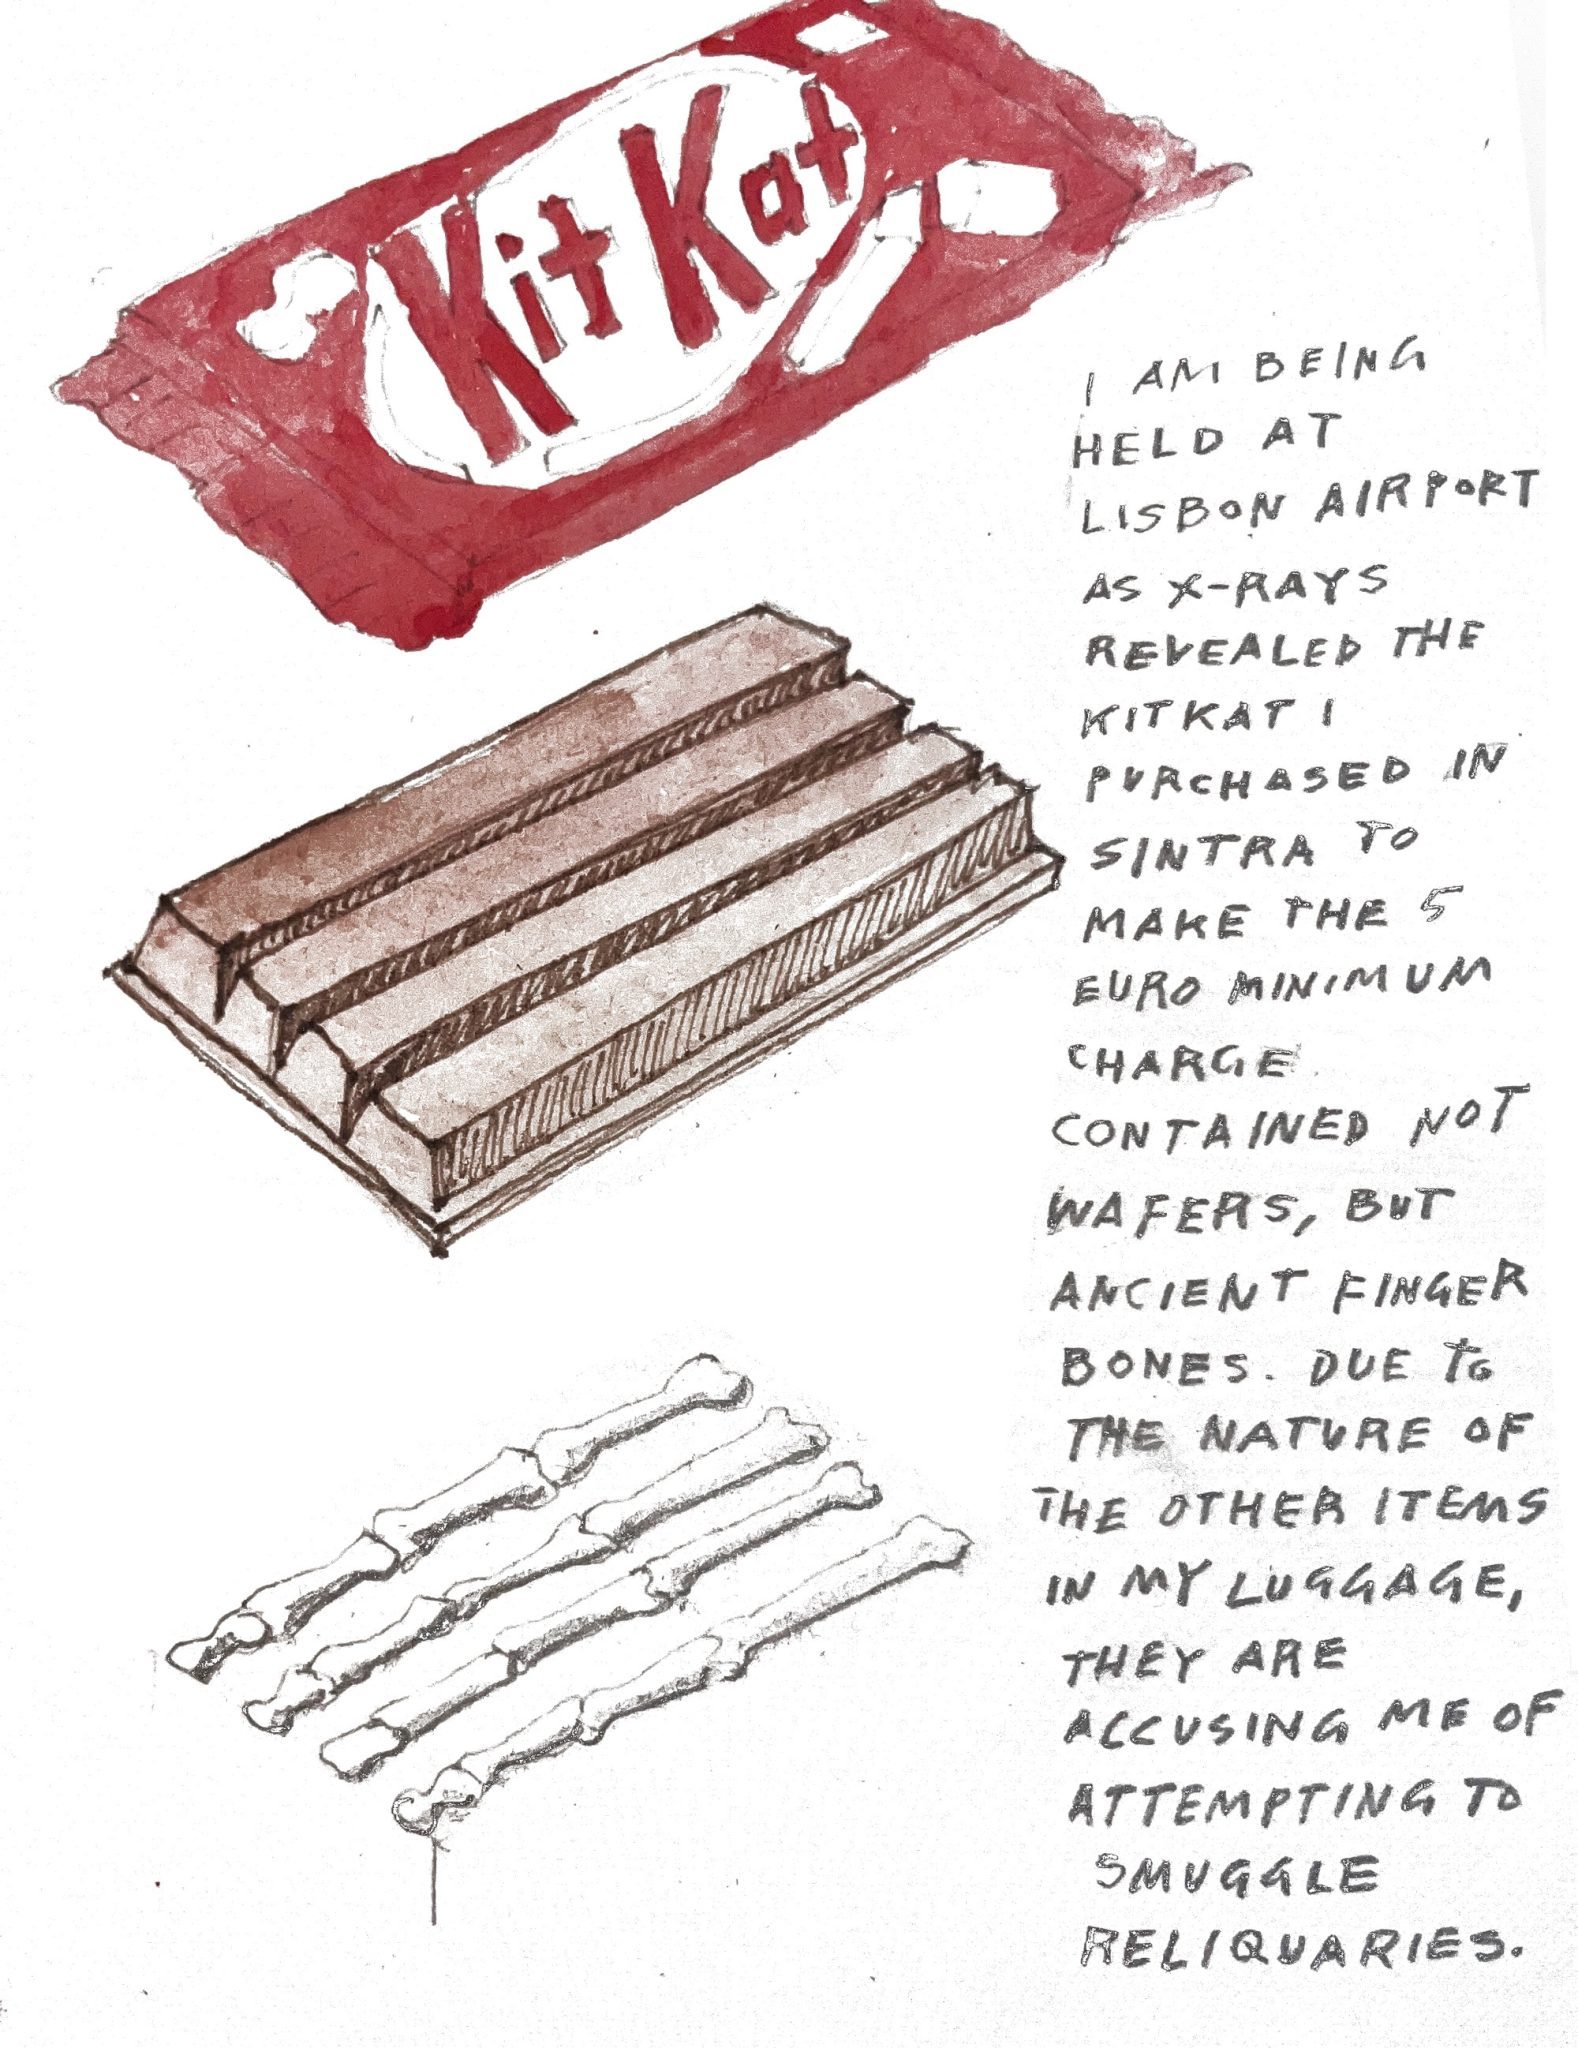 KitKat
I AM BEING
HELD AT
LISBON AIRPORT
AS X-RAYS
REVEALED THE
KITKAT I
PURCHASED IN
SINTRA TO
MAKE THE 5
EURO MINIMUM
CHARGE
CONTAINED NOT
WAFERS, BUT
ANCIENT FINGER
BONES. DUE TO
THE NATURE OF
THE OTHER ITEMS
IN MY LUGGAGE,
THEY ARE
ACCUSING ME OF
ATTEMPTING TO
SMUGGLE
RELIQUARIES.